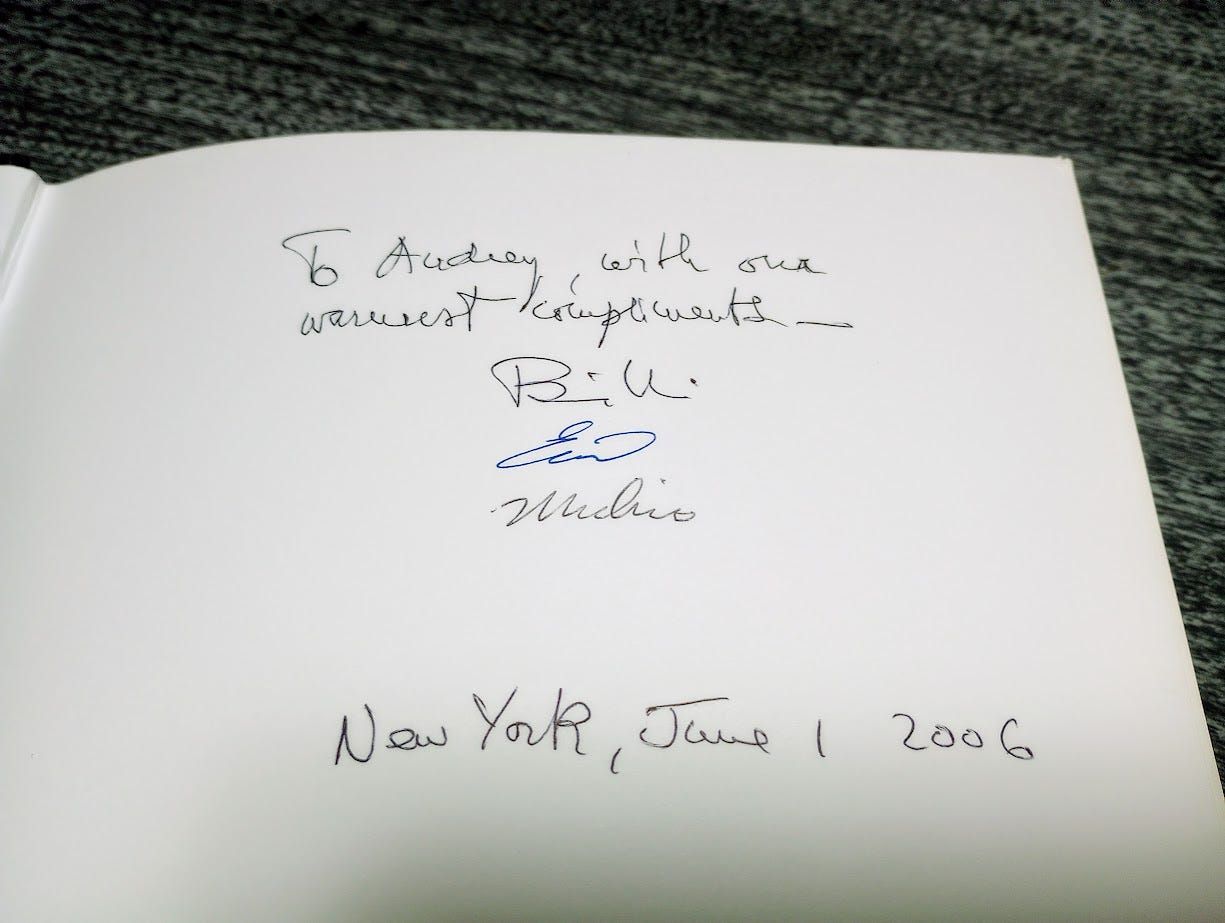 To Audrey, with our
warmest compliments—
New York, June 1 2006